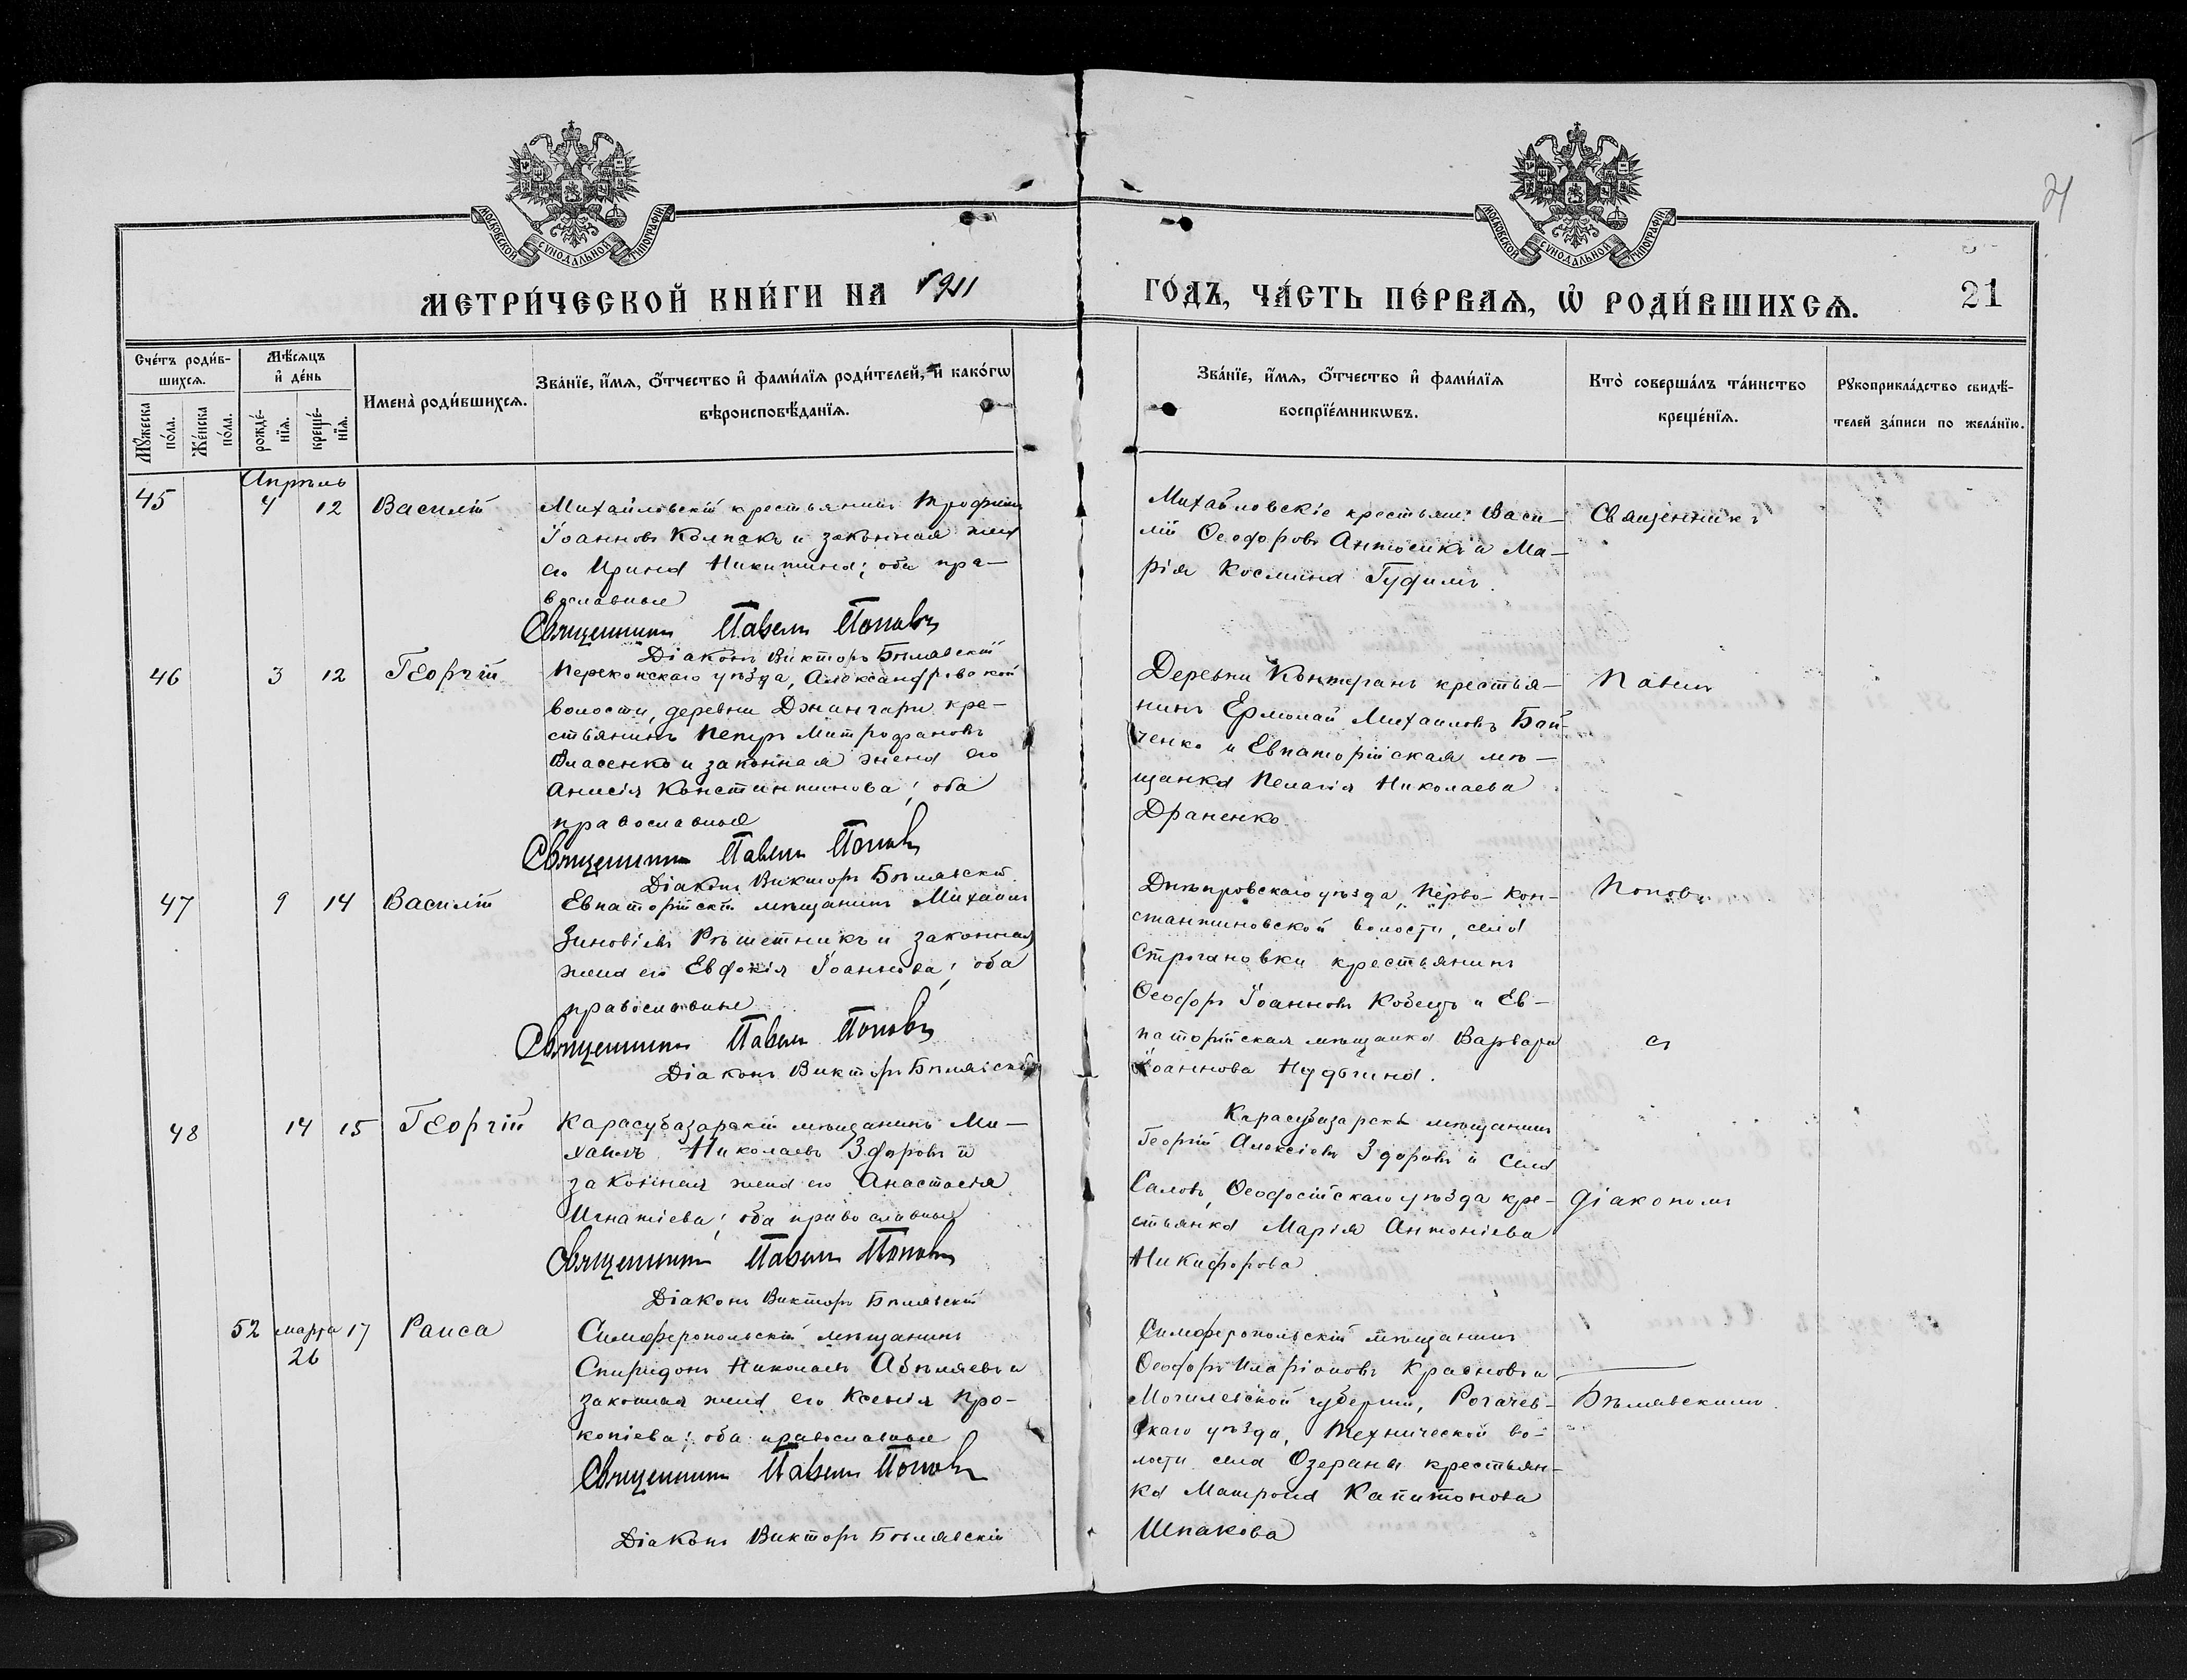 МОСКОВСКОЙ СѴНОДАЛЬНОЙ ТИПОГРАФІИ
МОСКОВСКОЙ СѴНОДАЛЬНОЙ ТИПОГРАФІИ
21
МЕТРИ́ЧЕСКОЙ КНИ́ГИ НА 1911
ГО́ДЪ, ЧА́СТЬ ПЕ́РВАѦ, Ѽ РОДИ́ВШИХСѦ.
21
Сче́тъ роди́в-
шихсѧ.
Мꙋ́жеска по́ла.
Же́нска по́ла.
Мѣ́сѧцъ
и҆ де́нь
рожде́-нїѧ.
креще́-нїѧ.
Имена̀ роди́вшихсѧ.
Зва́нїе, и҆́мѧ, ѻ҆́тчество и҆ фами́лїѧ роди́телей, и҆ како́гѡ
вѣроисповѣ́данїѧ.
Зва́нїе, и҆́мѧ, ѻ҆́тчество и҆ фами́лїѧ
воспрїе́мникѡвъ.
Кто̀ соверша́лъ та́инство
креще́нїѧ.
Рꙋкоприкла́дство свидѣ́-
телей за́писи по жела́нїю.
Апрѣль
45 4 12 Василій
Михайловскій крестьянинъ Трофимъ
Іоанновъ Колпакъ и законная жена
его Ирина Никитина; оба пра-
вославные
Священникъ Павелъ Поповъ
Діаконъ Викторъ Бѣлявскій
Михайловскіе крестьяне: Васи-
лій Ѳеодоровъ Антосикъ и Ма-
рія Космина Гудимъ.
Священникъ
46 3 12 Георгій
Перекопскаго уѣзда, Александровской
волости, деревни Джангари кре-
стьянинъ Петръ Митрофановъ
Власенко и законная жена его
Анисія Константинова; оба
православные
Священникъ Павелъ Поповъ
Діаконъ Викторъ Бѣлявскій
Деревни Контуганъ крестья-
нинъ Ермолай Михаиловъ Бой-
ченко и Евпаторійская мѣ-
щанка Пелагія Николаева
Драненко.
Павелъ
47 9 14 Василій
Евпаторійскій мѣщанинъ Михаилъ
Зиновіевъ Рѣшетникъ и законная
жена его Евдокія Іоаннова; оба
православные
Священникъ Павелъ Поповъ
Діаконъ Викторъ Бѣлявскій
Днѣпровскаго уѣзда, Перво-Кон-
стантиновской волости, села
Строгановки крестьянинъ
Ѳеодоръ Іоанновъ Кобецъ и Ев-
паторійская мѣщанка Варвара
Іоаннова Нудьгина.
Поповъ
съ
48 14 15 Георгій
Карасубазарскій мѣщанинъ Ми-
хаилъ Николаевъ Здоровъ и
законная жена его Анастасія
Игнатіева; оба православные
Священникъ Павелъ Поповъ
Діаконъ Викторъ Бѣлявскій
Карасубазарскій мѣщанинъ
Георгій Алексіевъ Здоровъ и села
Саловъ, Ѳеодосійскаго уѣзда кре-
стьянка Марія Антоніева
Никифорова.
діакономъ
52 марта 17 Раиса
26
Симферопольскій мѣщанинъ
Спиридонъ Николаевъ Абѣляевъ и
законная жена его Ксенія Про-
копіева; оба православные
Священникъ Павелъ Поповъ
Діаконъ Викторъ Бѣлявскій
Симферопольскій мѣщанинъ
Ѳеодоръ Иларіоновъ Красновъ и
Могилевской губерніи, Рогачев-
скаго уѣзда, Техничской во-
лости села Озераны крестьян-
ка Матрона Капитонова
Шпакова
Бѣлявскимъ.